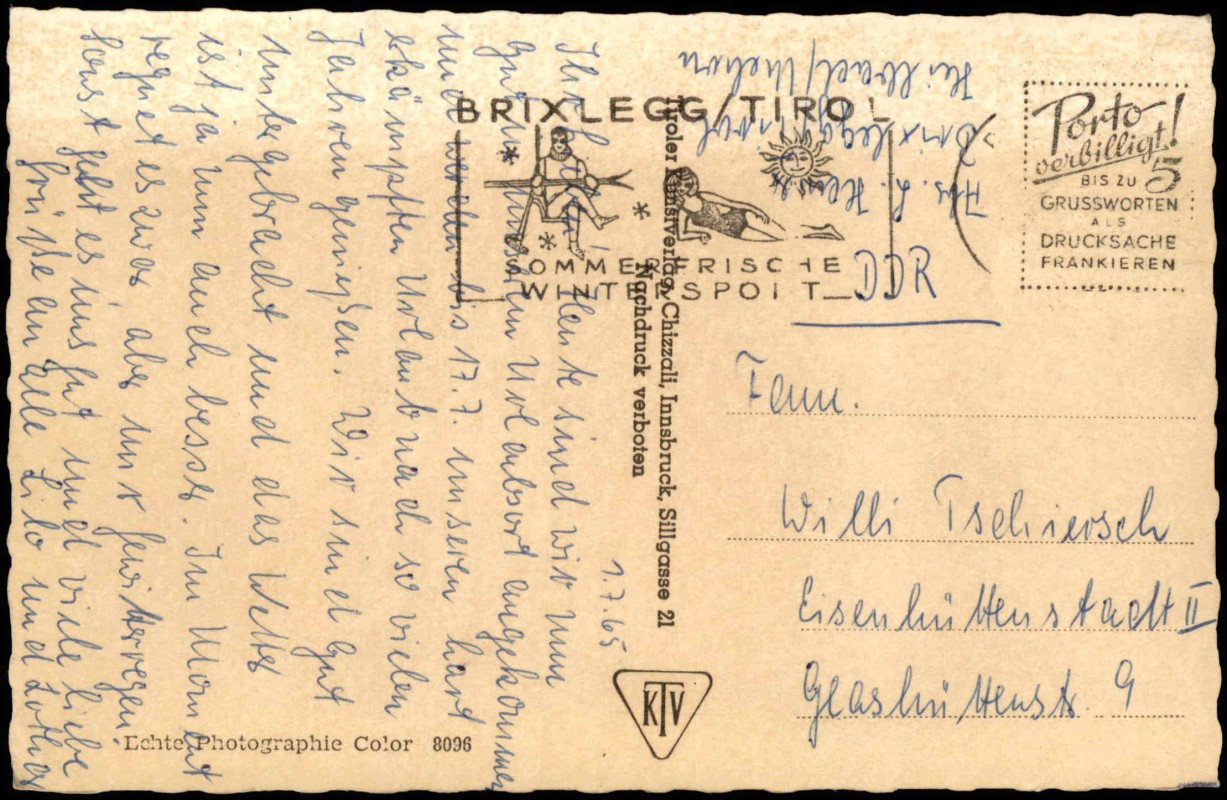 1.7.65
Ihr Lieben! Heute sind wir nun
gut in unserem Urlaubsort angekommen
und werden bis 17.7. unseren hart
erkämpften Urlaub nach so vielen
Jahren genießen. Wir sind gut
untergebracht und das Wetter
ist ja nun auch besser. Im Moment
regnet es zwar aber nur Gewitterregen.
Sonst geht es uns gut und viele liebe
Grüße an alle Lilo und Lothar
Echte Photographie Color 8096
Tiroler Kunstverlag Chizzali, Innsbruck, Sillgasse 21
Nachdruck verboten
KTV
BRIXLEGG/TIROL
SOMMERFRISCHE
WINTERSPORT
Porto
verbilligt!
BIS ZU 5
GRUSSWORTEN
ALS
DRUCKSACHE
FRANKIEREN
Abs. L.
Brixlegg/Tirol
DDR
Fam.
Willi Tschiersch
Eisenhüttenstadt II
Glashüttenstr. 9